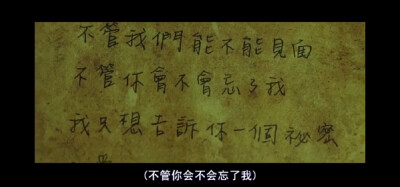 不管我們能不能見面
不管你會不會忘了我
我只想告訴你一個祕密
(不管你会不会忘了我)